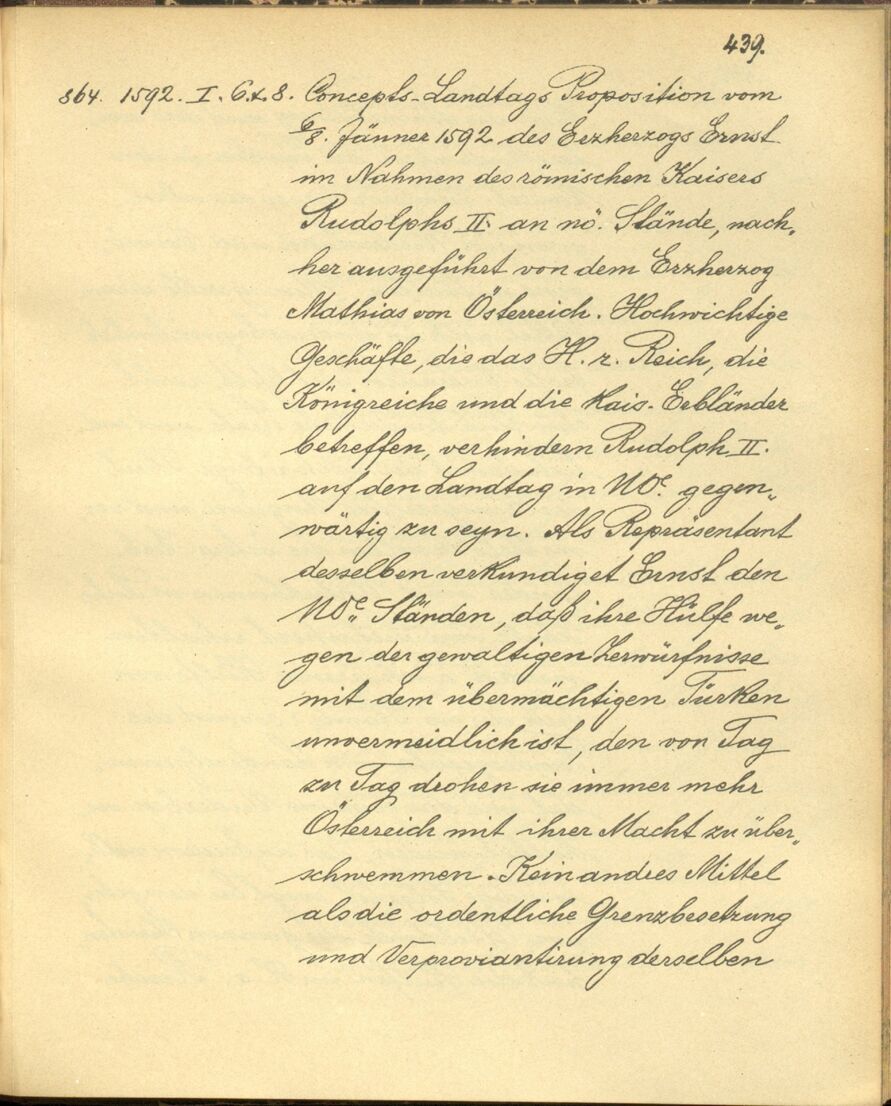 439.
864. 1592. I. 6.&8. Concepts-Landtags Proposition vom
6/8. Jänner 1592 des Erzherzogs Ernst
im Nahmen des römischen Kaisers
Rudolphs II. an nö. Stände, nach„
her ausgeführt von dem Erzherzog
Mathias von Österreich. Hochwichtige
Geschäfte, die das H. r. Reich, die
Königreiche und die Kais. Erbländer
betreffen, verhindern Rudolph II.
auf den Landtag in NÖ. gegen„
wärtig zu seyn. Als Repräsentant
desselben verkundiget Ernst den
NÖ. Ständen, daß ihre Hülfe we„
gen der gewaltigen Zerwürfnisse
mit dem übermächtigen Türken
unvermeidlich ist, den von Tag
zu Tag drohen sie immer mehr
Österreich mit ihrer Macht zu über„
schwemmen. Kein andres Mittel
als die ordentliche Grenzbesetzung
und Verproviantirung derselben